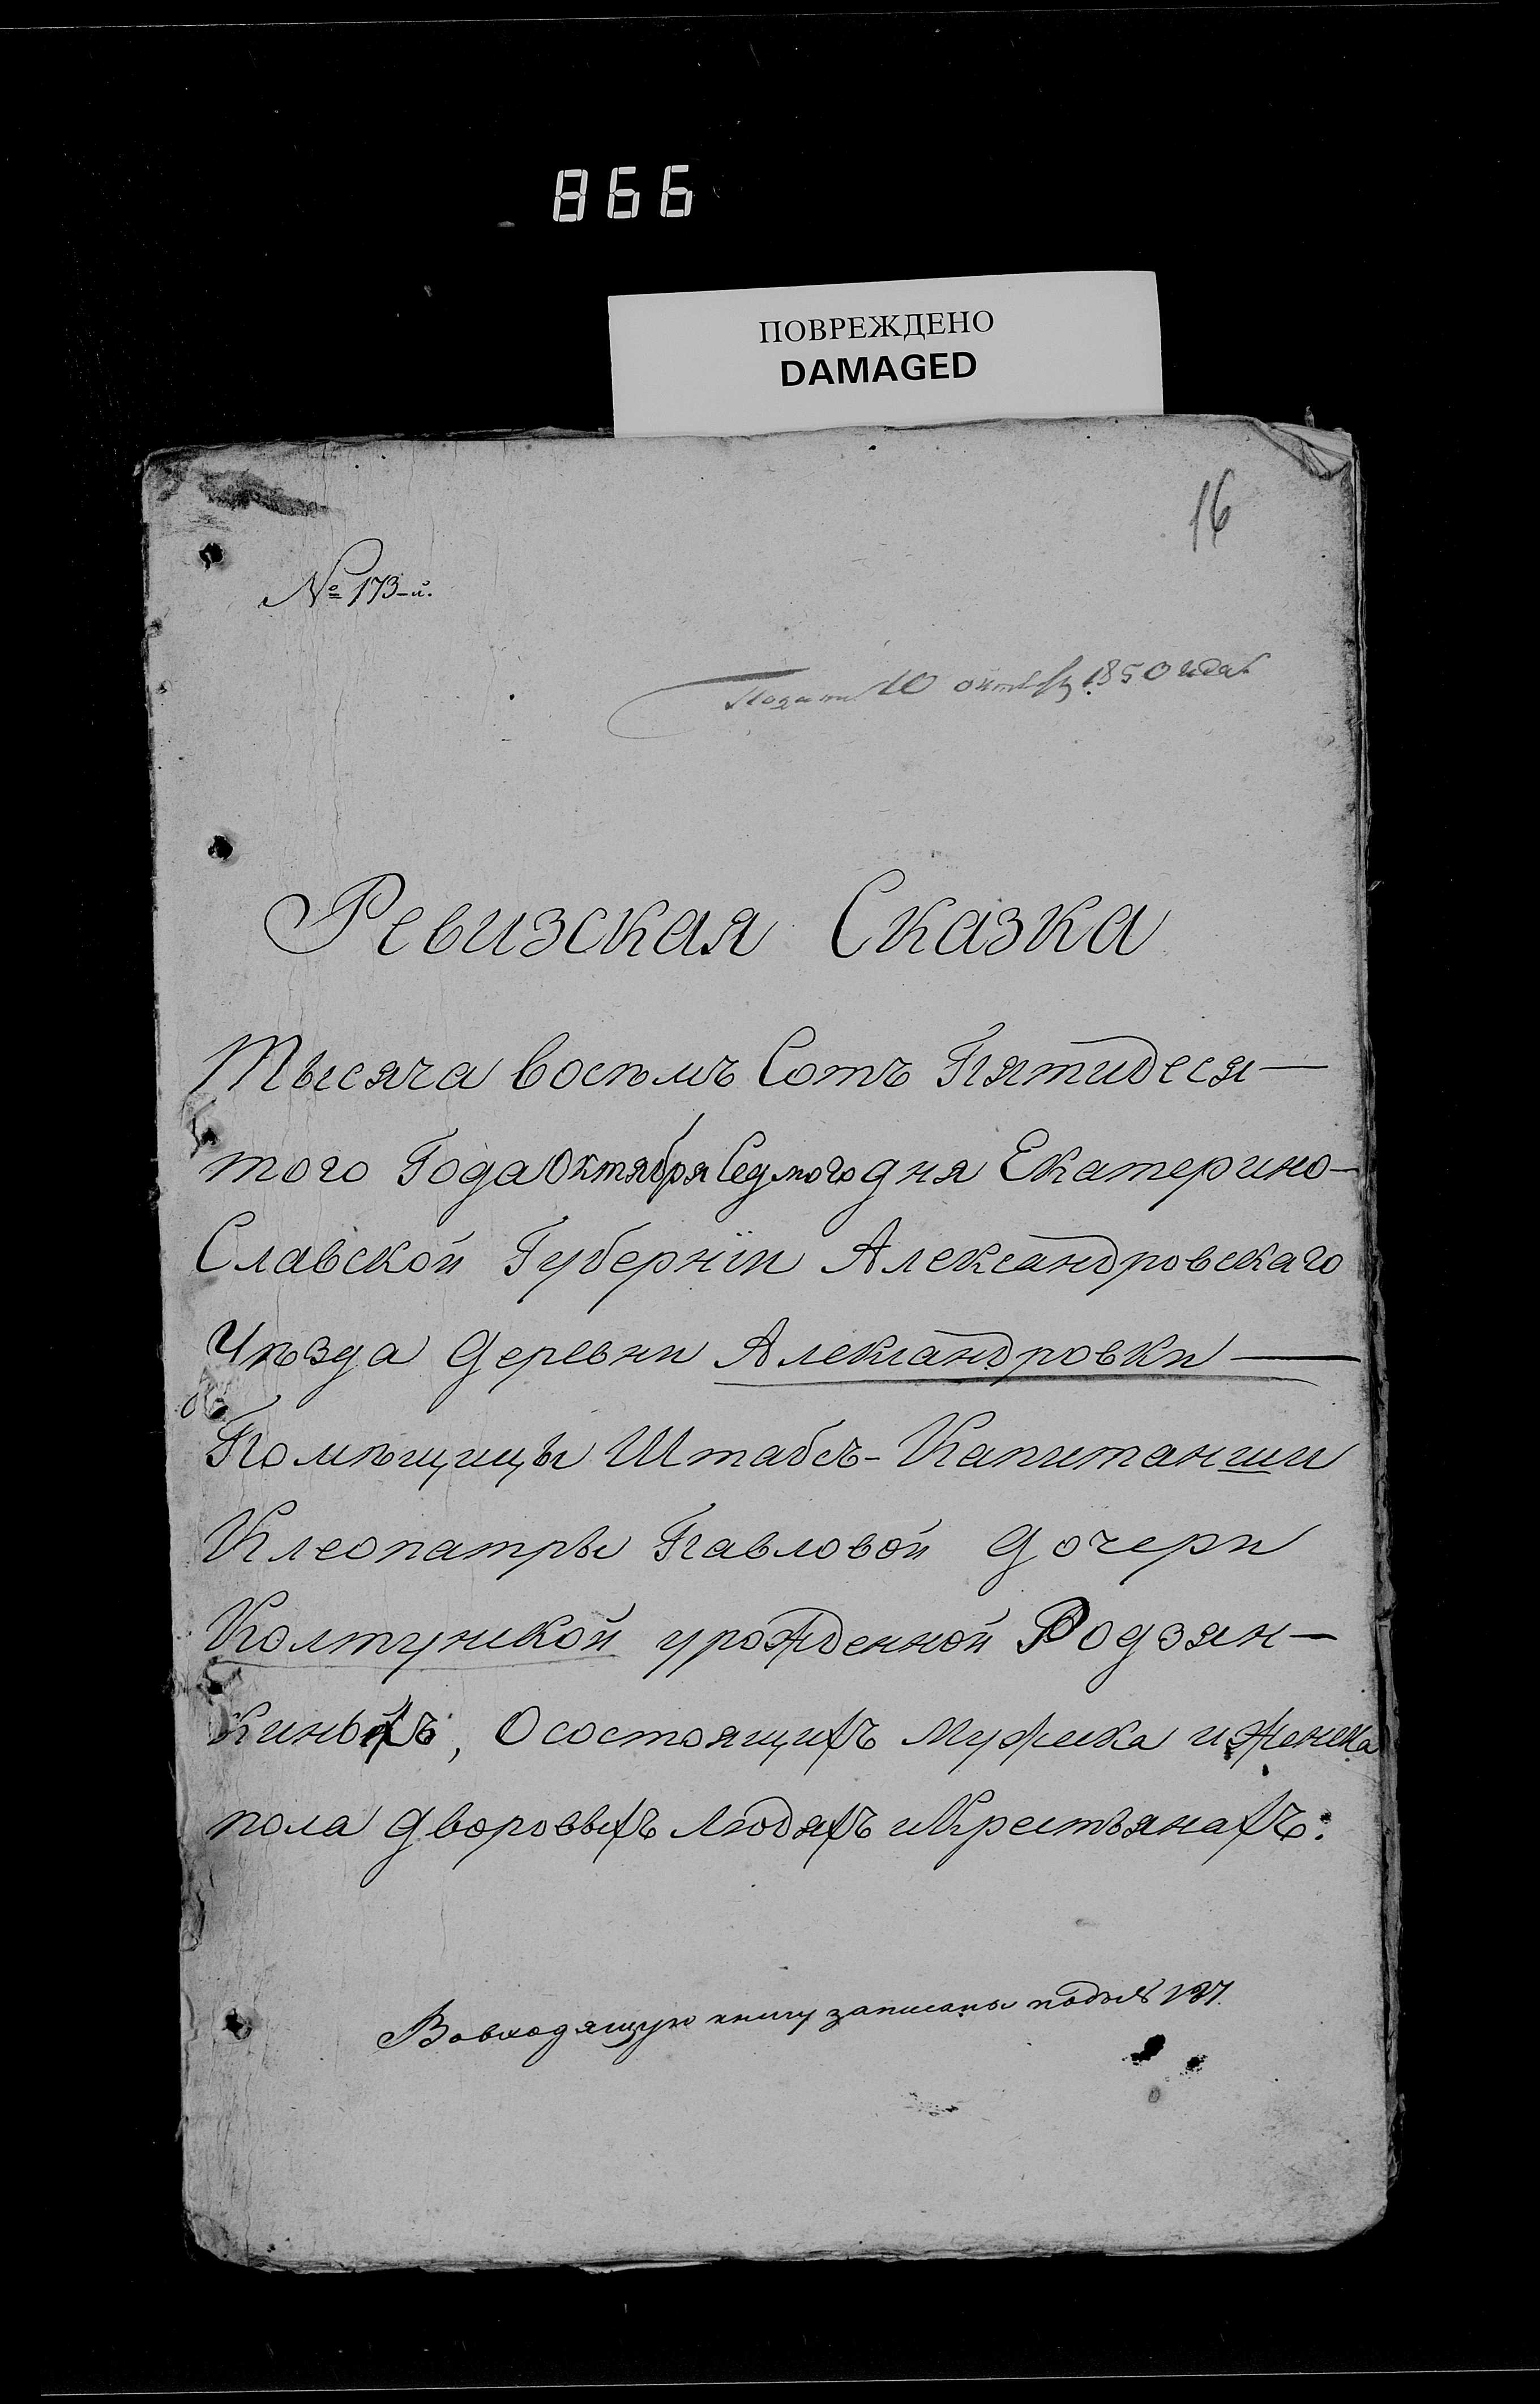 866
ПОВРЕЖДЕНО
DAMAGED
16
№ 173-й.
10 октября 1850 года
Ревизская Сказка
Тысяча восѣмъ Сотъ Пятидеся—
того Года Октября Седмого дня Екатерино—
Славской Губерніи Александровскаго
Уѣзда деревни Александровки —
Помѣщицы Штабсъ-Капитанши
Клеопатры Павловой дочери
Колтунской урожденной Родзян—
киныхъ, О состоящихъ мужеска и женска
пола дворовыхъ людяхъ и Крестьянахъ:
Во входящую книгу записаны подъ №